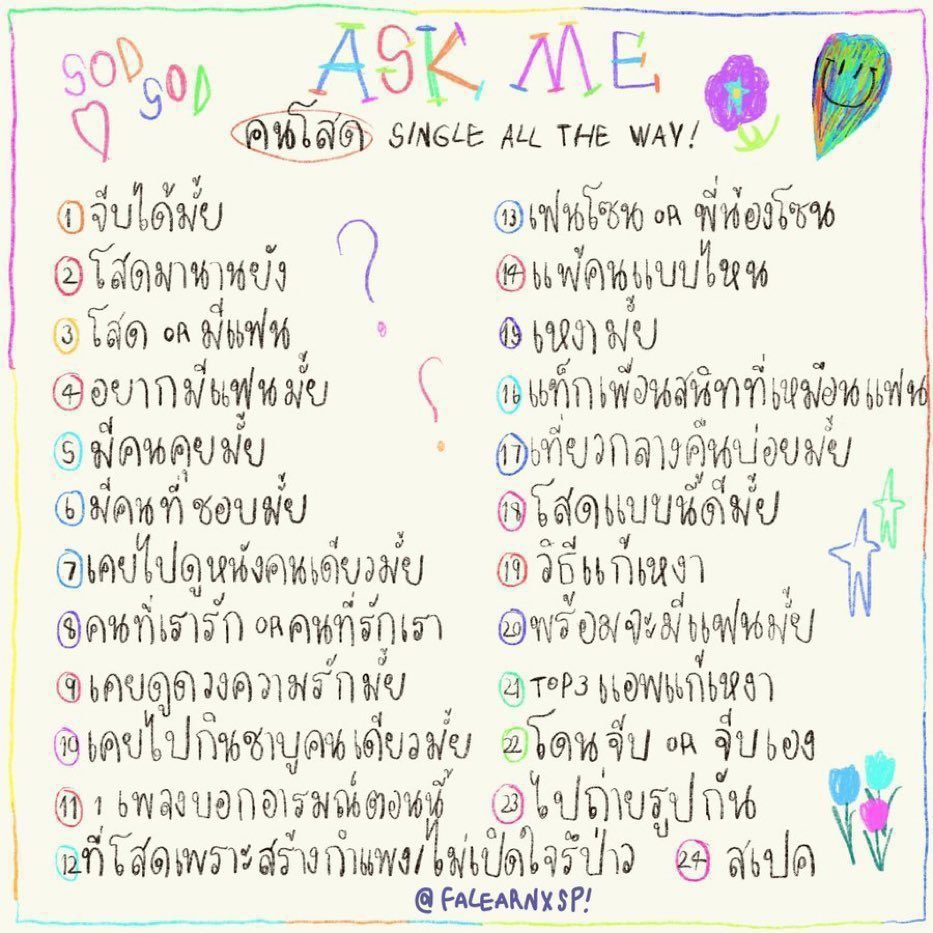 SOD
SOD
ASK ME
คนโสด SINGLE ALL THE WAY!
1 จีบได้มั้ย
2 โสดมานานยัง
3 โสด OR มีแฟน
4 อยากมีแฟนมั้ย
5 มีคนคุยมั้ย
6 มีคนที่ชอบมั้ย
7 เคยไปดูหนังคนเดียวมั้ย
8 คนที่เรารัก OR คนที่รักเรา
9 เคยดูดวงความรักมั้ย
10 เคยไปกินชาบูคนเดียวมั้ย
11 1 เพลงบอกอารมณ์ตอนนี้
12 ที่โสดเพราะสร้างกำแพง/ไม่เปิดใจรึป่าว
13 แฟนโซน OR พี่น้องโซน
14 แพ้คนแบบไหน
15 เหงามั้ย
16 แท็กเพื่อนสนิทที่เหมือนแฟน
17 เที่ยวกลางคืนบ่อยมั้ย
18 โสดแบบนี้ดีมั้ย
19 วิธีแก้เหงา
20 พร้อมจะมีแฟนมั้ย
21 TOP3 แอพแก้เหงา
22 โดนจีบ OR จีบเอง
23 ไปถ่ายรูปกัน
24 สเปค
@FALEARNXSP!